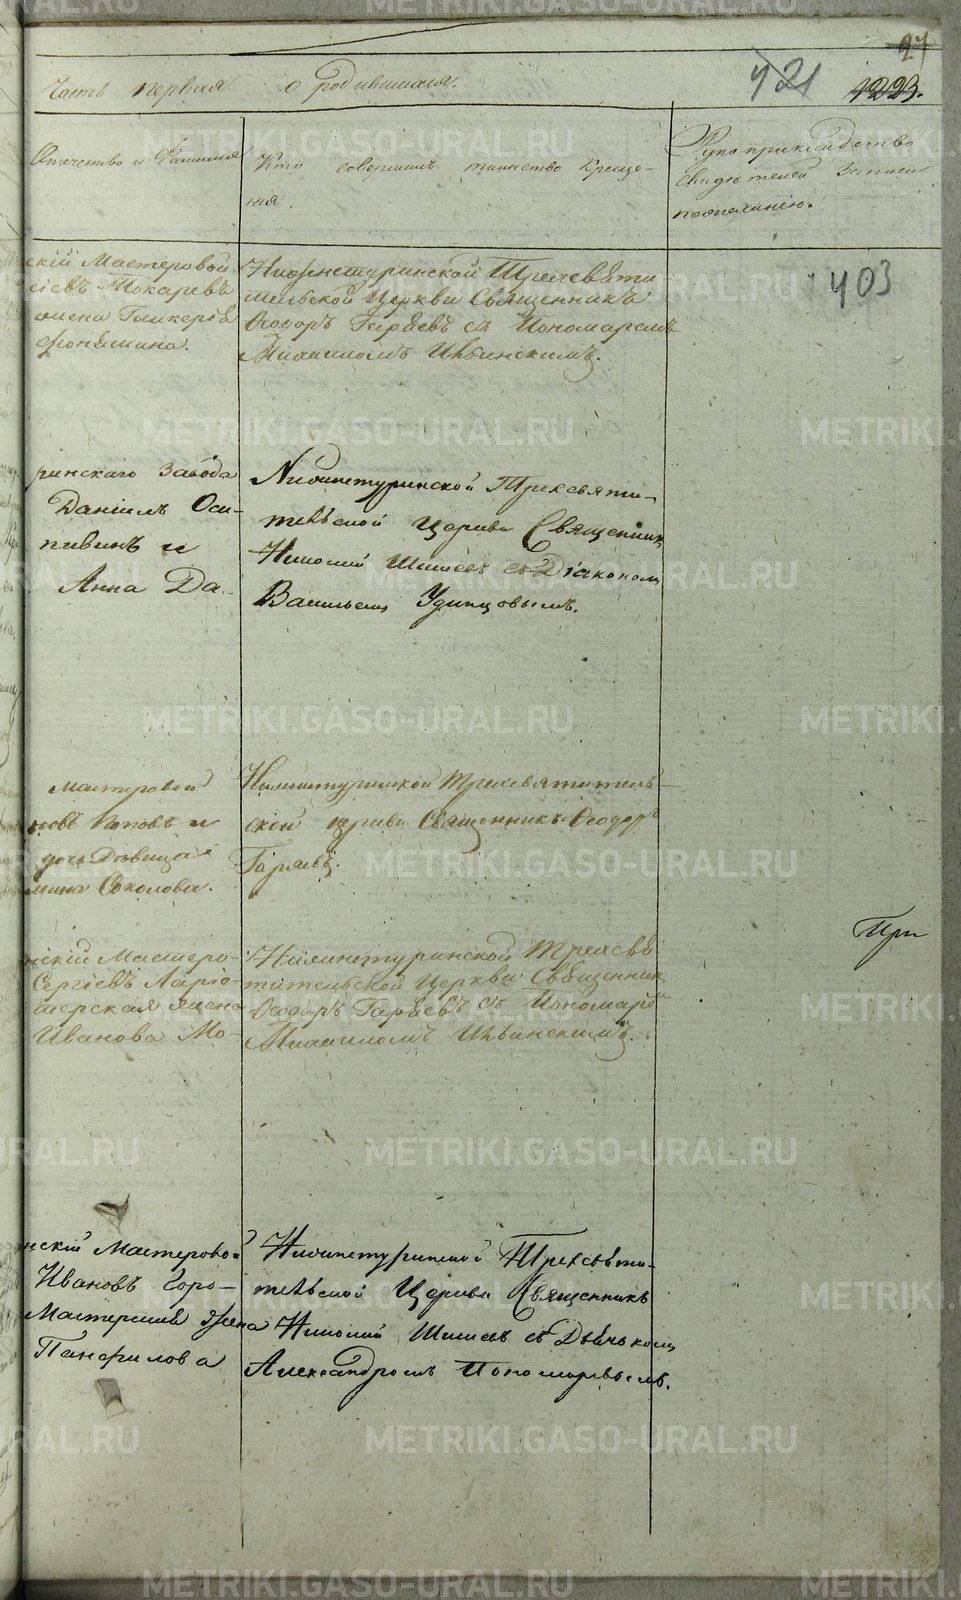 27
Часть первая о родившихся.
421
1223.
Отчество и Фамилия
Кто совершалъ таинство Креще-
нія.
Рукоприкладство
Свидѣтелей Записи
403
скій Мастеровой
Токаревъ
Гликерія
Нижнетуринской Трехсвяти-
тельской Церкви Священникъ
Ѳеодоръ Гаряевъ съ Пономаремъ
Михаиломъ Ильинскимъ.
ринскаго Завода
Даніилъ Оси-
и
Анна Да-
Нижнетуринской Трехсвяти-
тельской Церкви Священникъ
Николай Шишевъ съ Діакономъ
Васильемъ Удинцовымъ.
Мастеровой
новъ Поповъ и
дочь Дѣвица
Соколова.
Нижнетуринской Трехсвятитель-
ской церкви Священникъ Ѳеодоръ
Гаряевъ.
При
нскій Мастеро-
Сергіевъ Ларіо-
терская жена
Иванова Мо-
Нижнетуринской Трехсвя-
тительской Церкви Священник
Ѳеодоръ Гаряевъ съ Пономаре
Михаиломъ Ильинскимъ.
нскій Мастеровой
Ивановъ Горо-
Мастерская жена
Панфилова
Нижнетуринской Трехсвяти-
тельской Церкви Священникъ
Николай Шишевъ съ Дьячкомъ
Александромъ Пономаревымъ.
METRIKI.GASO-URAL.RU